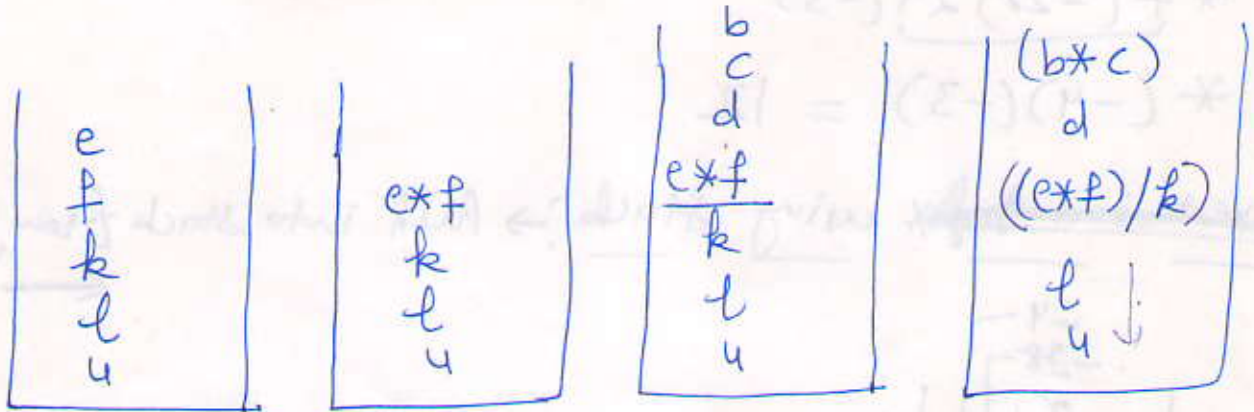 e
f
k
l
u
e*f
k
l
u
b
c
d
e*f
k
l
u
(b*c)
d
((e*f)/k)
l
u
* (-4)(-3) = 12